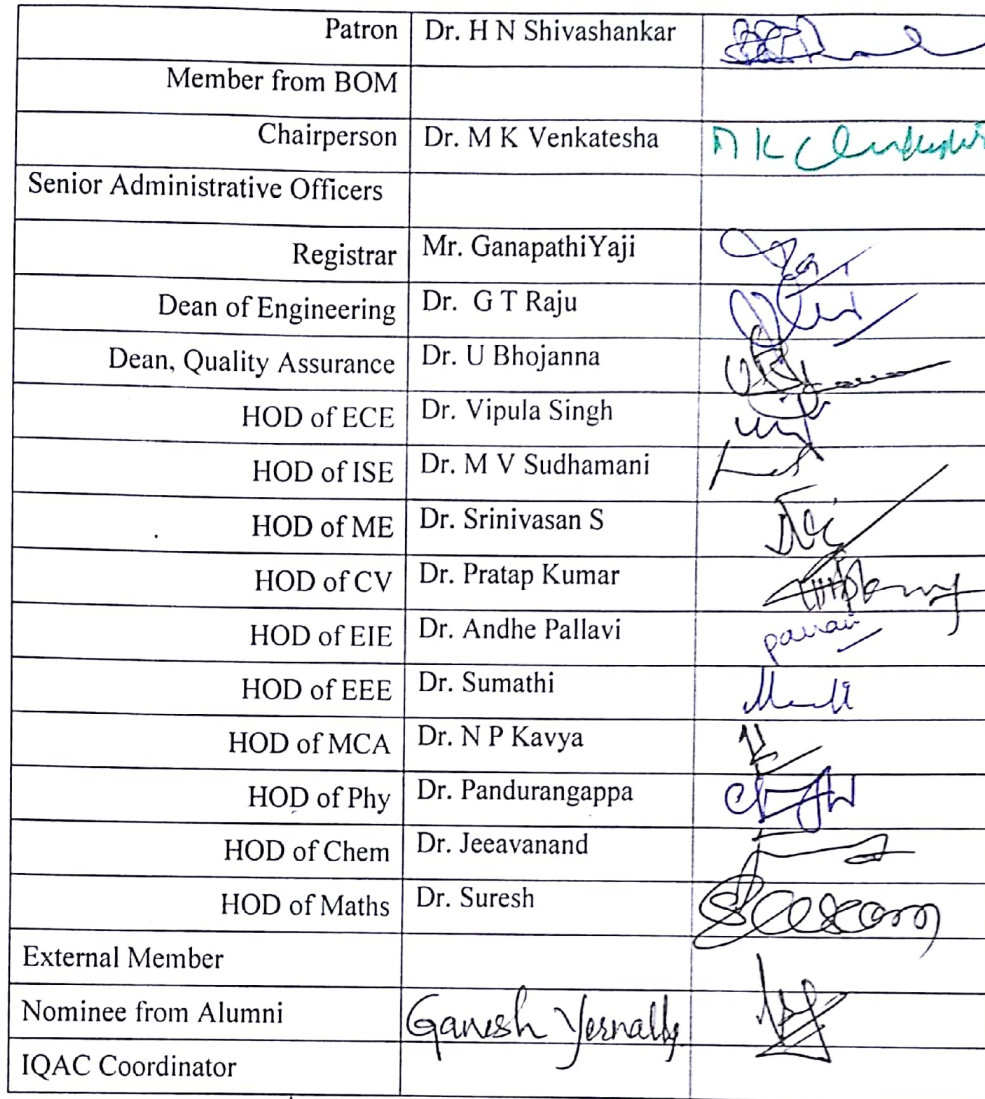 Patron Dr. H N Shivashankar
Member from BOM
Chairperson Dr. M K Venkatesha
Senior Administrative Officers
Registrar Mr. GanapathiYaji
Dean of Engineering Dr. G T Raju
Dean, Quality Assurance Dr. U Bhojanna
HOD of ECE Dr. Vipula Singh
HOD of ISE Dr. M V Sudhamani
HOD of ME Dr. Srinivasan S
HOD of CV Dr. Pratap Kumar
HOD of EIE Dr. Andhe Pallavi
HOD of EEE Dr. Sumathi
HOD of MCA Dr. N P Kavya
HOD of Phy Dr. Pandurangappa
HOD of Chem Dr. Jeeavanand
HOD of Maths Dr. Suresh
External Member
Nominee from Alumni Ganesh
IQAC Coordinator